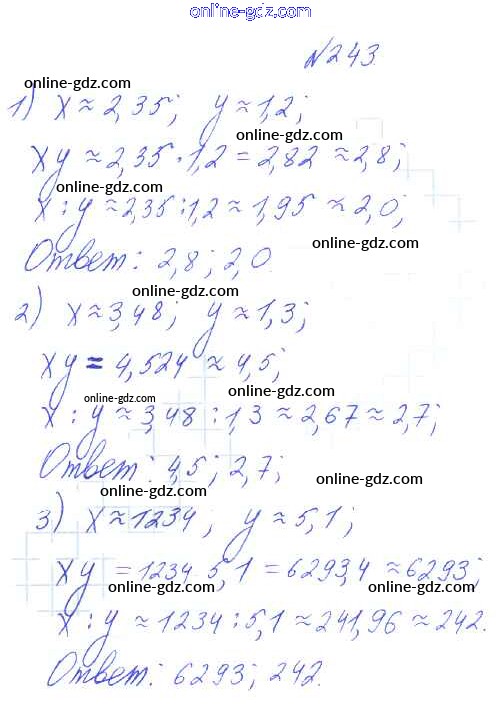 online-gdz.com
№243.
online-gdz.com
1) x≈2,35; y≈1,2;
online-gdz.com
xy≈2,35·1,2=2,82≈2,8;
online-gdz.com
x:y≈2,35:1,2≈1,95≈2,0;
online-gdz.com
Ответ: 2,8; 2,0.
online-gdz.com
2) x≈3,48; y≈1,3;
online-gdz.com
xy=4,524≈4,5;
online-gdz.com
online-gdz.com
x:y≈3,48:1,3≈2,67≈2,7;
online-gdz.com
Ответ: 4,5; 2,7;
online-gdz.com
online-gdz.com
3) x≈1234; y≈5,1;
online-gdz.com
xy=1234·5,1=6293,4≈6293;
online-gdz.com online-gdz.com
x:y≈1234:5,1≈241,96≈242.
online-gdz.com
Ответ: 6293; 242.